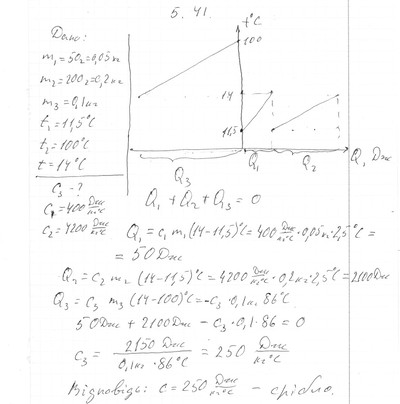 5.41.
Дано:
m₁=50г=0,05кг
m₂=200г=0,2кг
m₃=0,1кг
t₁=11,5°C
t₂=100°C
t=14°C
c₃-?
c₁=400 Дж/кг°C
c₂=4200 Дж/кг°C
t°C
100
14
11,5
Q, Дж
Q₃ Q₁ Q₂
Q₁+Q₂+Q₃=0
Q₁=c₁m₁(14-11,5)°C=400 Дж/кг°C·0,05кг·2,5°C=
=50Дж
Q₂=c₂m₂(14-11,5)°C=4200 Дж/кг°C·0,2кг·2,5°C=2100Дж
Q₃=c₃m₃(14-100)°C=-c₃·0,1кг·86°C
50Дж+2100Дж-c₃·0,1·86=0
c₃=2150Дж/0,1кг·86°C=250 Дж/кг°C
Відповідь: c=250 Дж/кг°C - срібло.